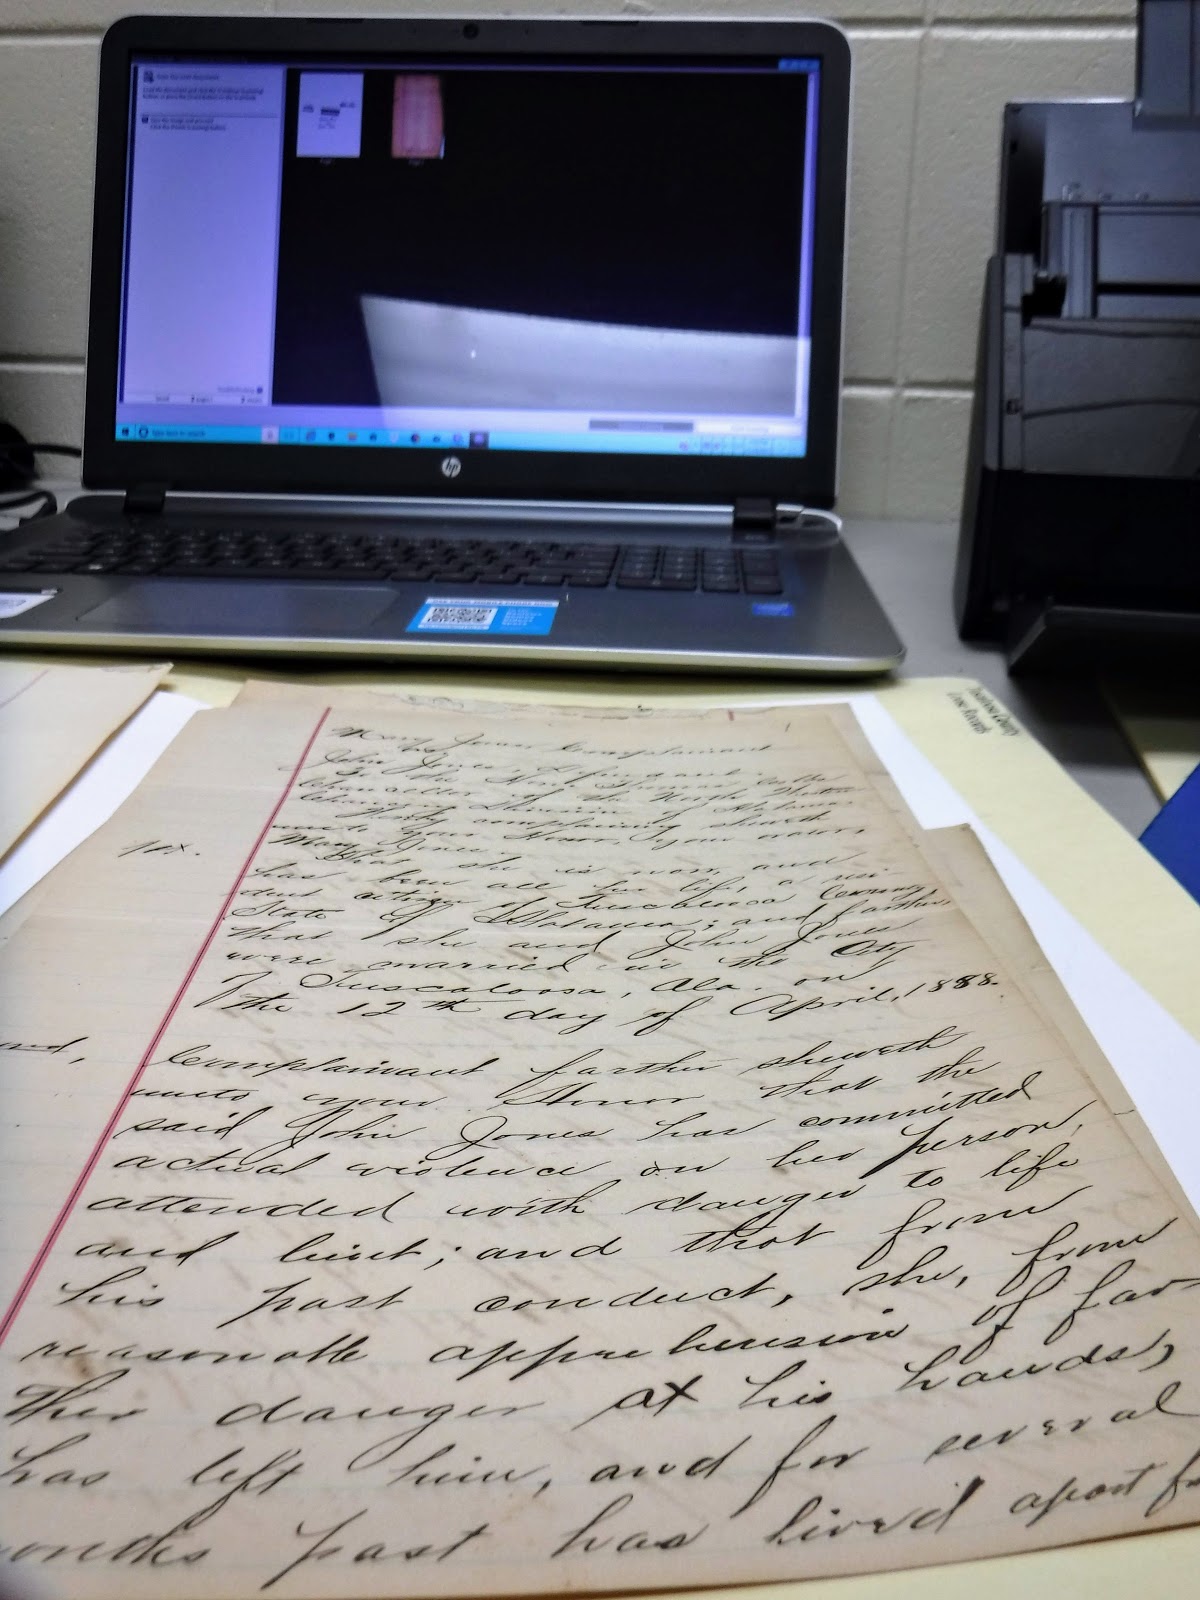 hp
Tuscaloosa County
Loose Records
Mary Jones Complainant
vs
John Jones, Defendant.
To the Hon. Thomas
Chancellor of the North Western
Chancery Division of Alabama
Humbly complaining sheweth
unto your Honor, your oratrix,
Mary Jones.
1st.
That she is now, and
has been all her life, a resi-
dent citizen of Tuscaloosa County,
State of Alabama; and further,
that she and John Jones
were married in the City
of Tuscaloosa, Ala. on
the 12th day of April, 1888.
2nd,
Complainant farther sheweth
unto your Honor that the
said John Jones has committed
actual violence on her person,
attended with danger to life
and limb; and that from
his past conduct, she, from
reasonable apprehension of far-
ther danger at his hands,
has left him, and for several
months past has lived apart